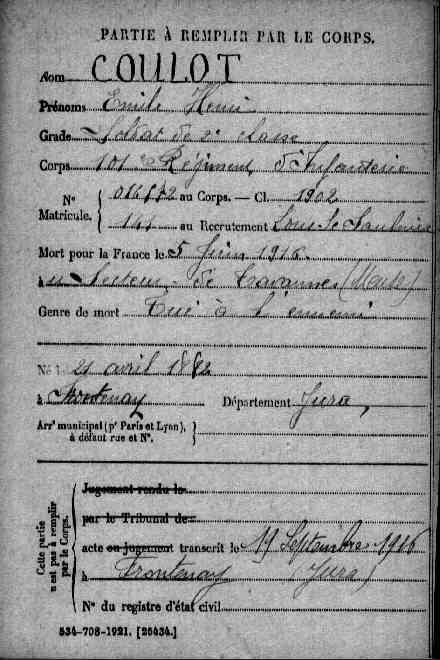 PARTIE À REMPLIR PAR LE CORPS.
Nom COULOT
Prénoms Emile Henri
Grade Soldat de 2e classe
Corps 101e Régiment d'Infanterie
N° Matricule. { 016872 au Corps. — Cl. 1902
141 au Recrutement Lons-le-Saulnier
Mort pour la France le 5 Juin 1916
à u Secteur de Tavannes (Meuse)
Genre de mort Tué à l'ennemi
Né le 21 avril 1882
à Frontenay Département Jura,
Arrt municipal (pr Paris et Lyon), à défaut rue et N°. }
Cette partie n'est pas à remplir par le Corps. {
Jugement rendu le
par le Tribunal de
acte ou jugement transcrit le 19 Septembre 1916
à Frontenay (Jura)
N° du registre d'état civil
534-708-1921. [26434.]